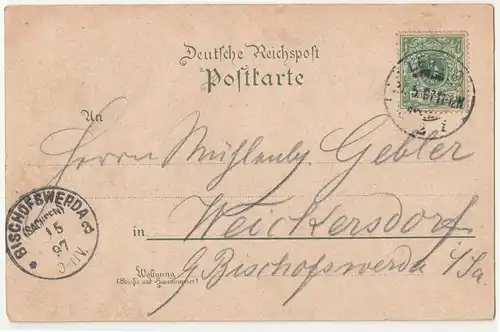 Deutsche Reichspost
Postkarte
An
Herrn Mühlenbs. Gebler
in Weickersdorf
Wohnung
(Straße und Hausnummer)
b. Bischofswerda i/Sa.
BISCHOFSWERDA
(SACHSEN)
15
97